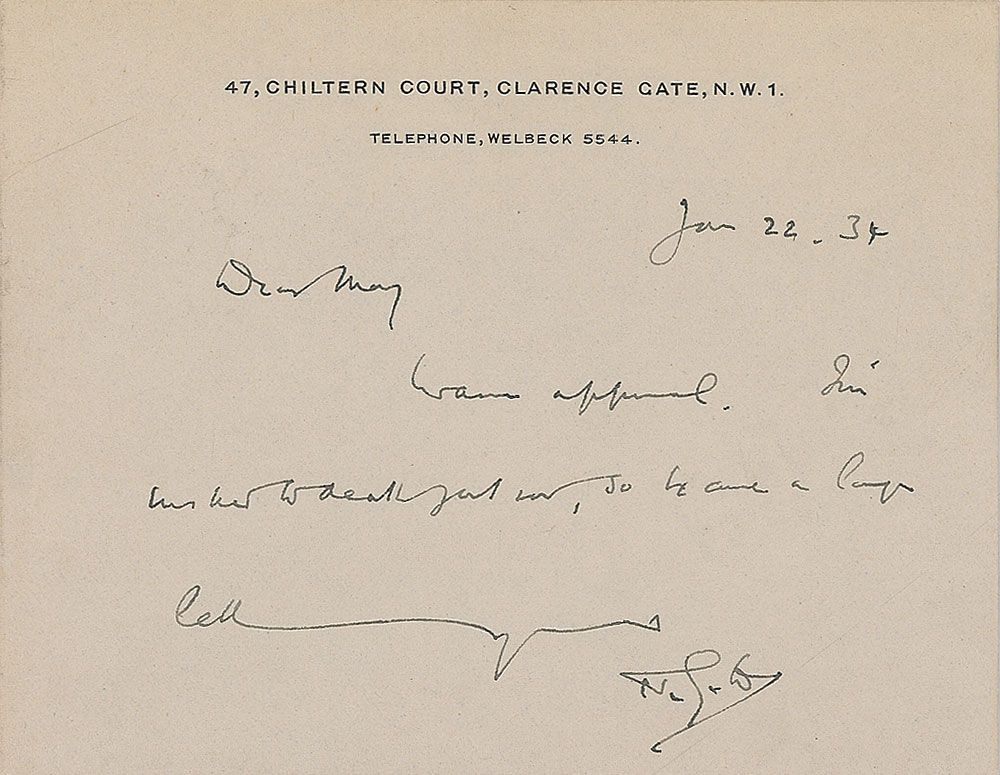 47, CHILTERN COURT, CLARENCE GATE, N.W.1.
TELEPHONE, WELBECK 5544.
Jan 22. 34
Dear May
Warm approval. I'm
to death just now, so a longer